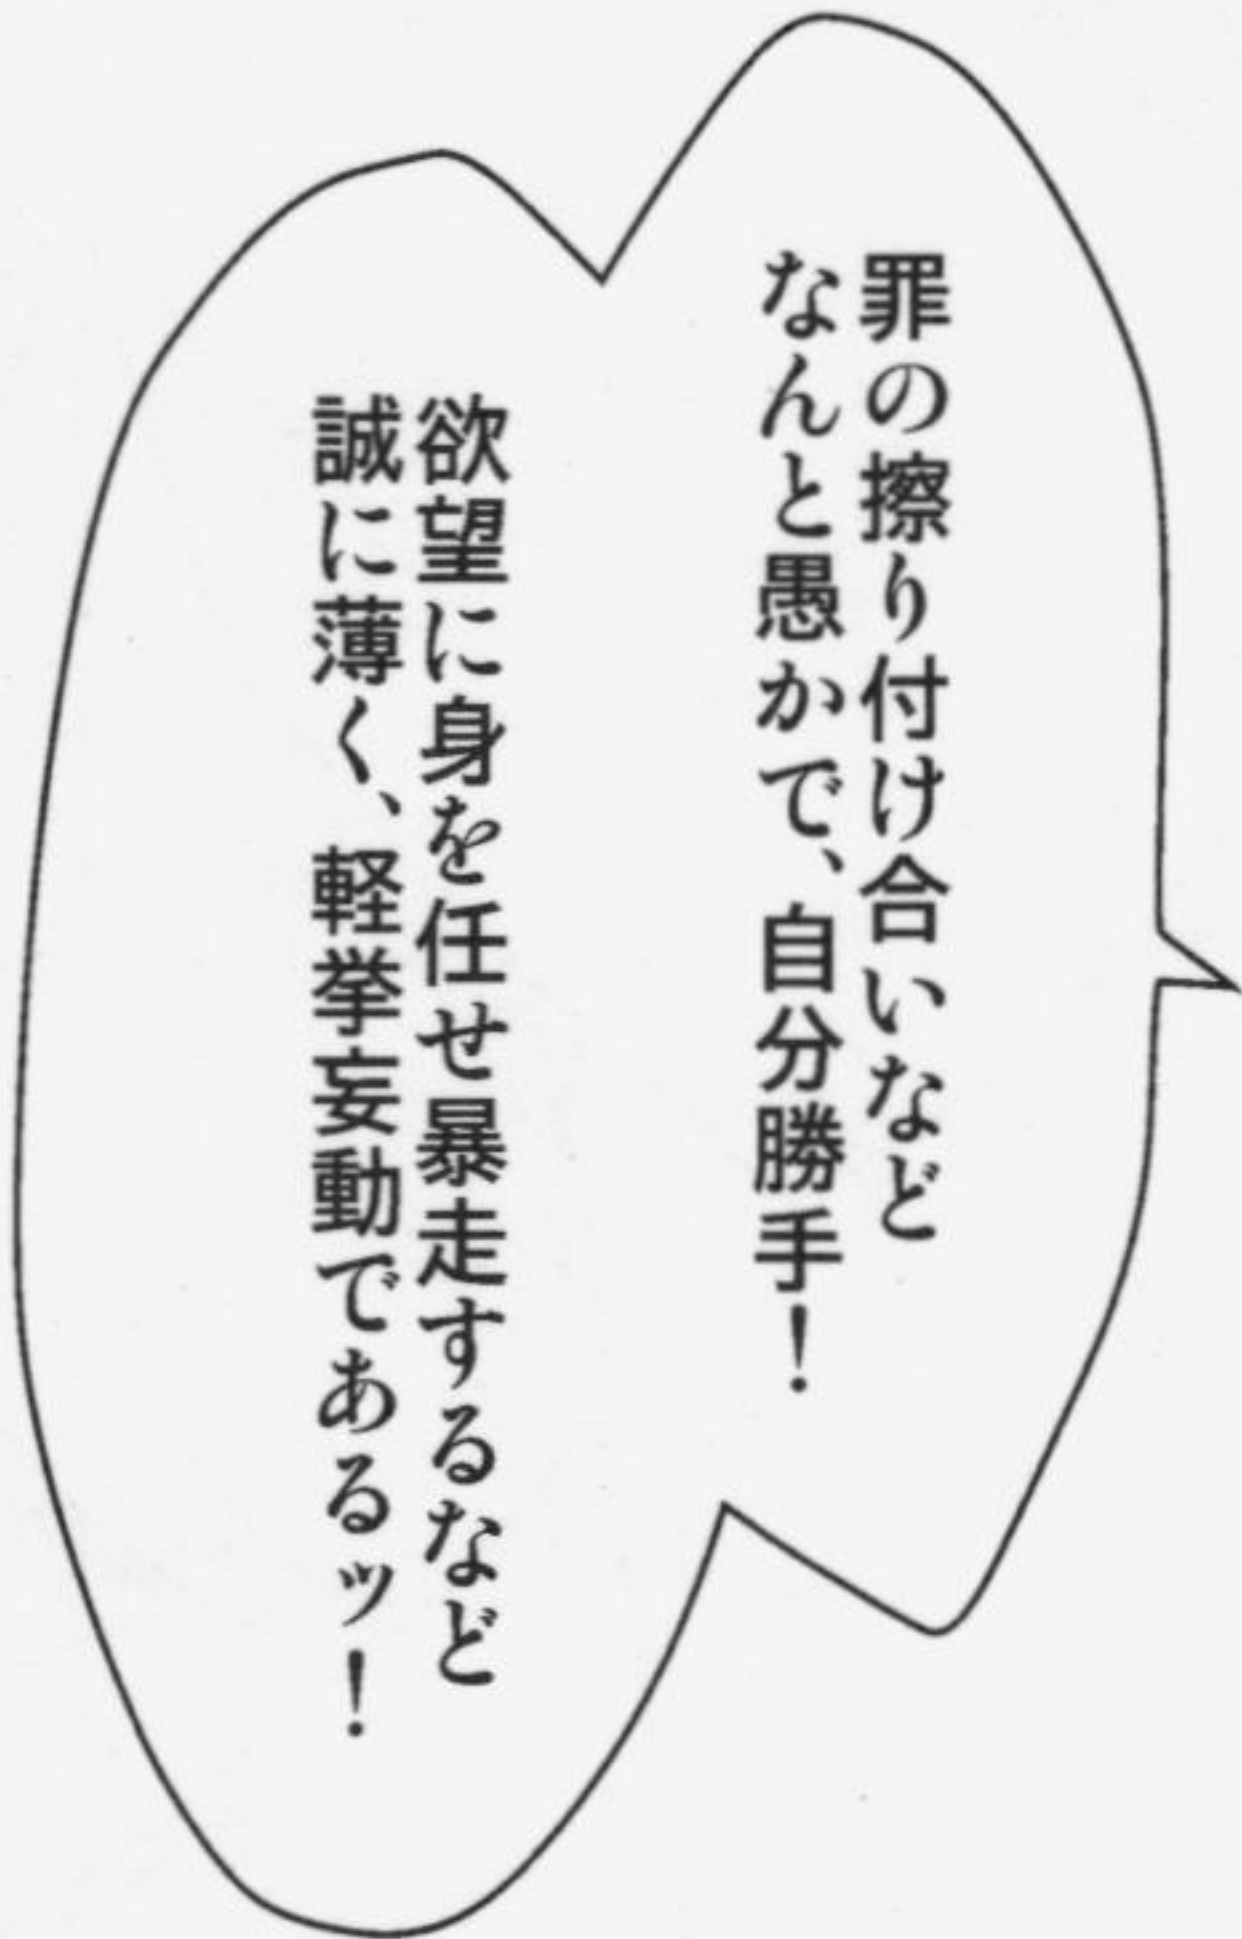 罪の擦り付け合いなど
なんと愚かで、自分勝手！
欲望に身を任せ暴走するなど
誠に薄く、軽挙妄動であるッ！